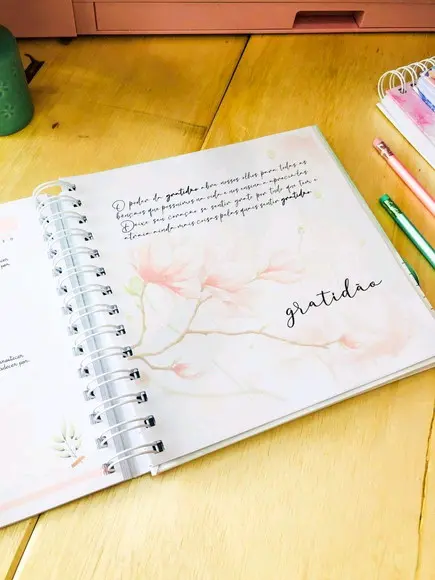 O poder da gratidão abre nossos olhos para todas as
bençãos que possuímos na vida e nos ensina a apreciá-las.
Deixe seu coração se sentir grato por tudo que tem e
atraia ainda mais coisas pelas quais sentir gratidão.
gratidão